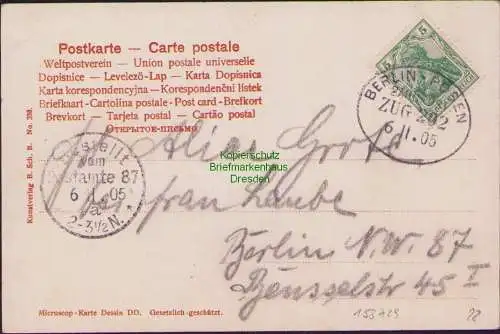 Postkarte — Carte postale
Weltpostverein - Union postale universelle
Dopisnice - Levelező-Lap - Karta Dopisnica
Karta korespondencyjna - Korespondenční lístek
Briefkaart - Cartolina postale - Post card - Brefkort
Brevkort - Tarjeta postal - Cartão postal
ОТКРЫТОЕ-ПИСЬМО
5 5
BERLIN
ZUG
6 11.05
Bestellt
vom
Postamte 87
6 11.05
2-3½N.
Kopierschutz
Briefmarkenhaus
Dresden
Frau
Berlin N.W. 87
Beusselstr 45 I
Kunstverlag B. Sch. B. No. 288.
Microscop-Karte Dessin DD. Gesetzlich-geschützt.
153729